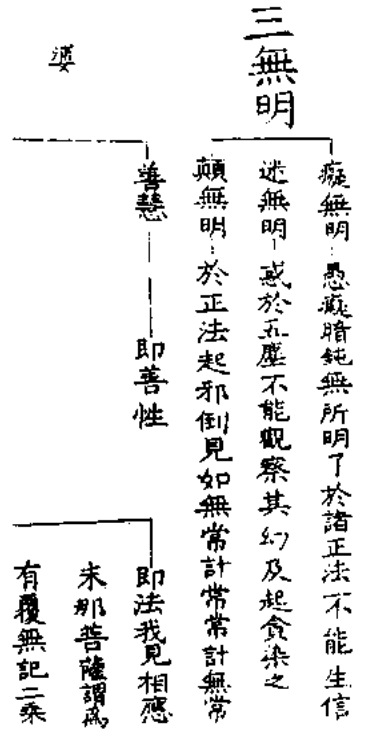 三無明
癡無明:愚癡暗鈍無所明了於諸正法不能生信
迷無明-惑於五塵不能觀察其幻及起貪染之
顛無明:於正法起邪倒見如無常計常常計無常
善慧——即善性
即法我見相應
末那菩薩謂為
有覆無記二乘
婆